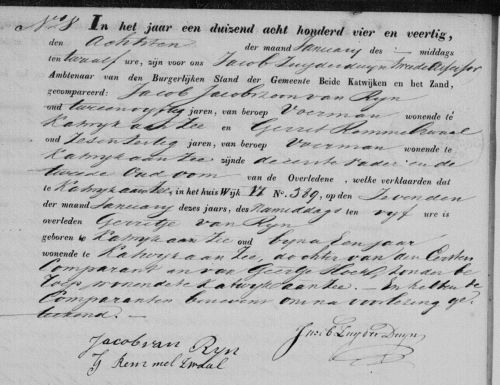 No. 8 In het jaar een duizend acht honderd vier en veertig,
den Achtsten der maand January des — middags
ten twaalf ure, zijn voor ons Jacob Zuyderduyn
Ambtenaar van den Burgerlijken Stand der Gemeente Beide Katwijken en het Zand,
gecompareerd: Jacob Jacobzoon van Ryn
oud twee en vyftig jaren, van beroep Voerman wonende te
Katwyk aan Zee en Gerrit
oud Zes en dertig jaren, van beroep Voerman wonende te
Katwyk aan Zee zijnde de eerste vader en de
tweede Oud oom van de Overledene, welke verklaarden dat
te Katwyk aan Zee, in het huis Wijk VI No. 389, op den Zevenden
der maand January dezes jaars, des Namiddags ten vyf ure is
overleden Gerritje van Ryn
geboren te Katwyk aan Zee oud byna Een jaar
wonende te Katwyk aan Zee, dochter van den Eersten
Comparant en van Geertje Hoek, zonder be
roep wonende te Katwyk aan Zee. — En hebben de
Comparanten benevens ons na voorlezing ge
teekend. —
Jacob van Ryn Jacob Zuyderduyn